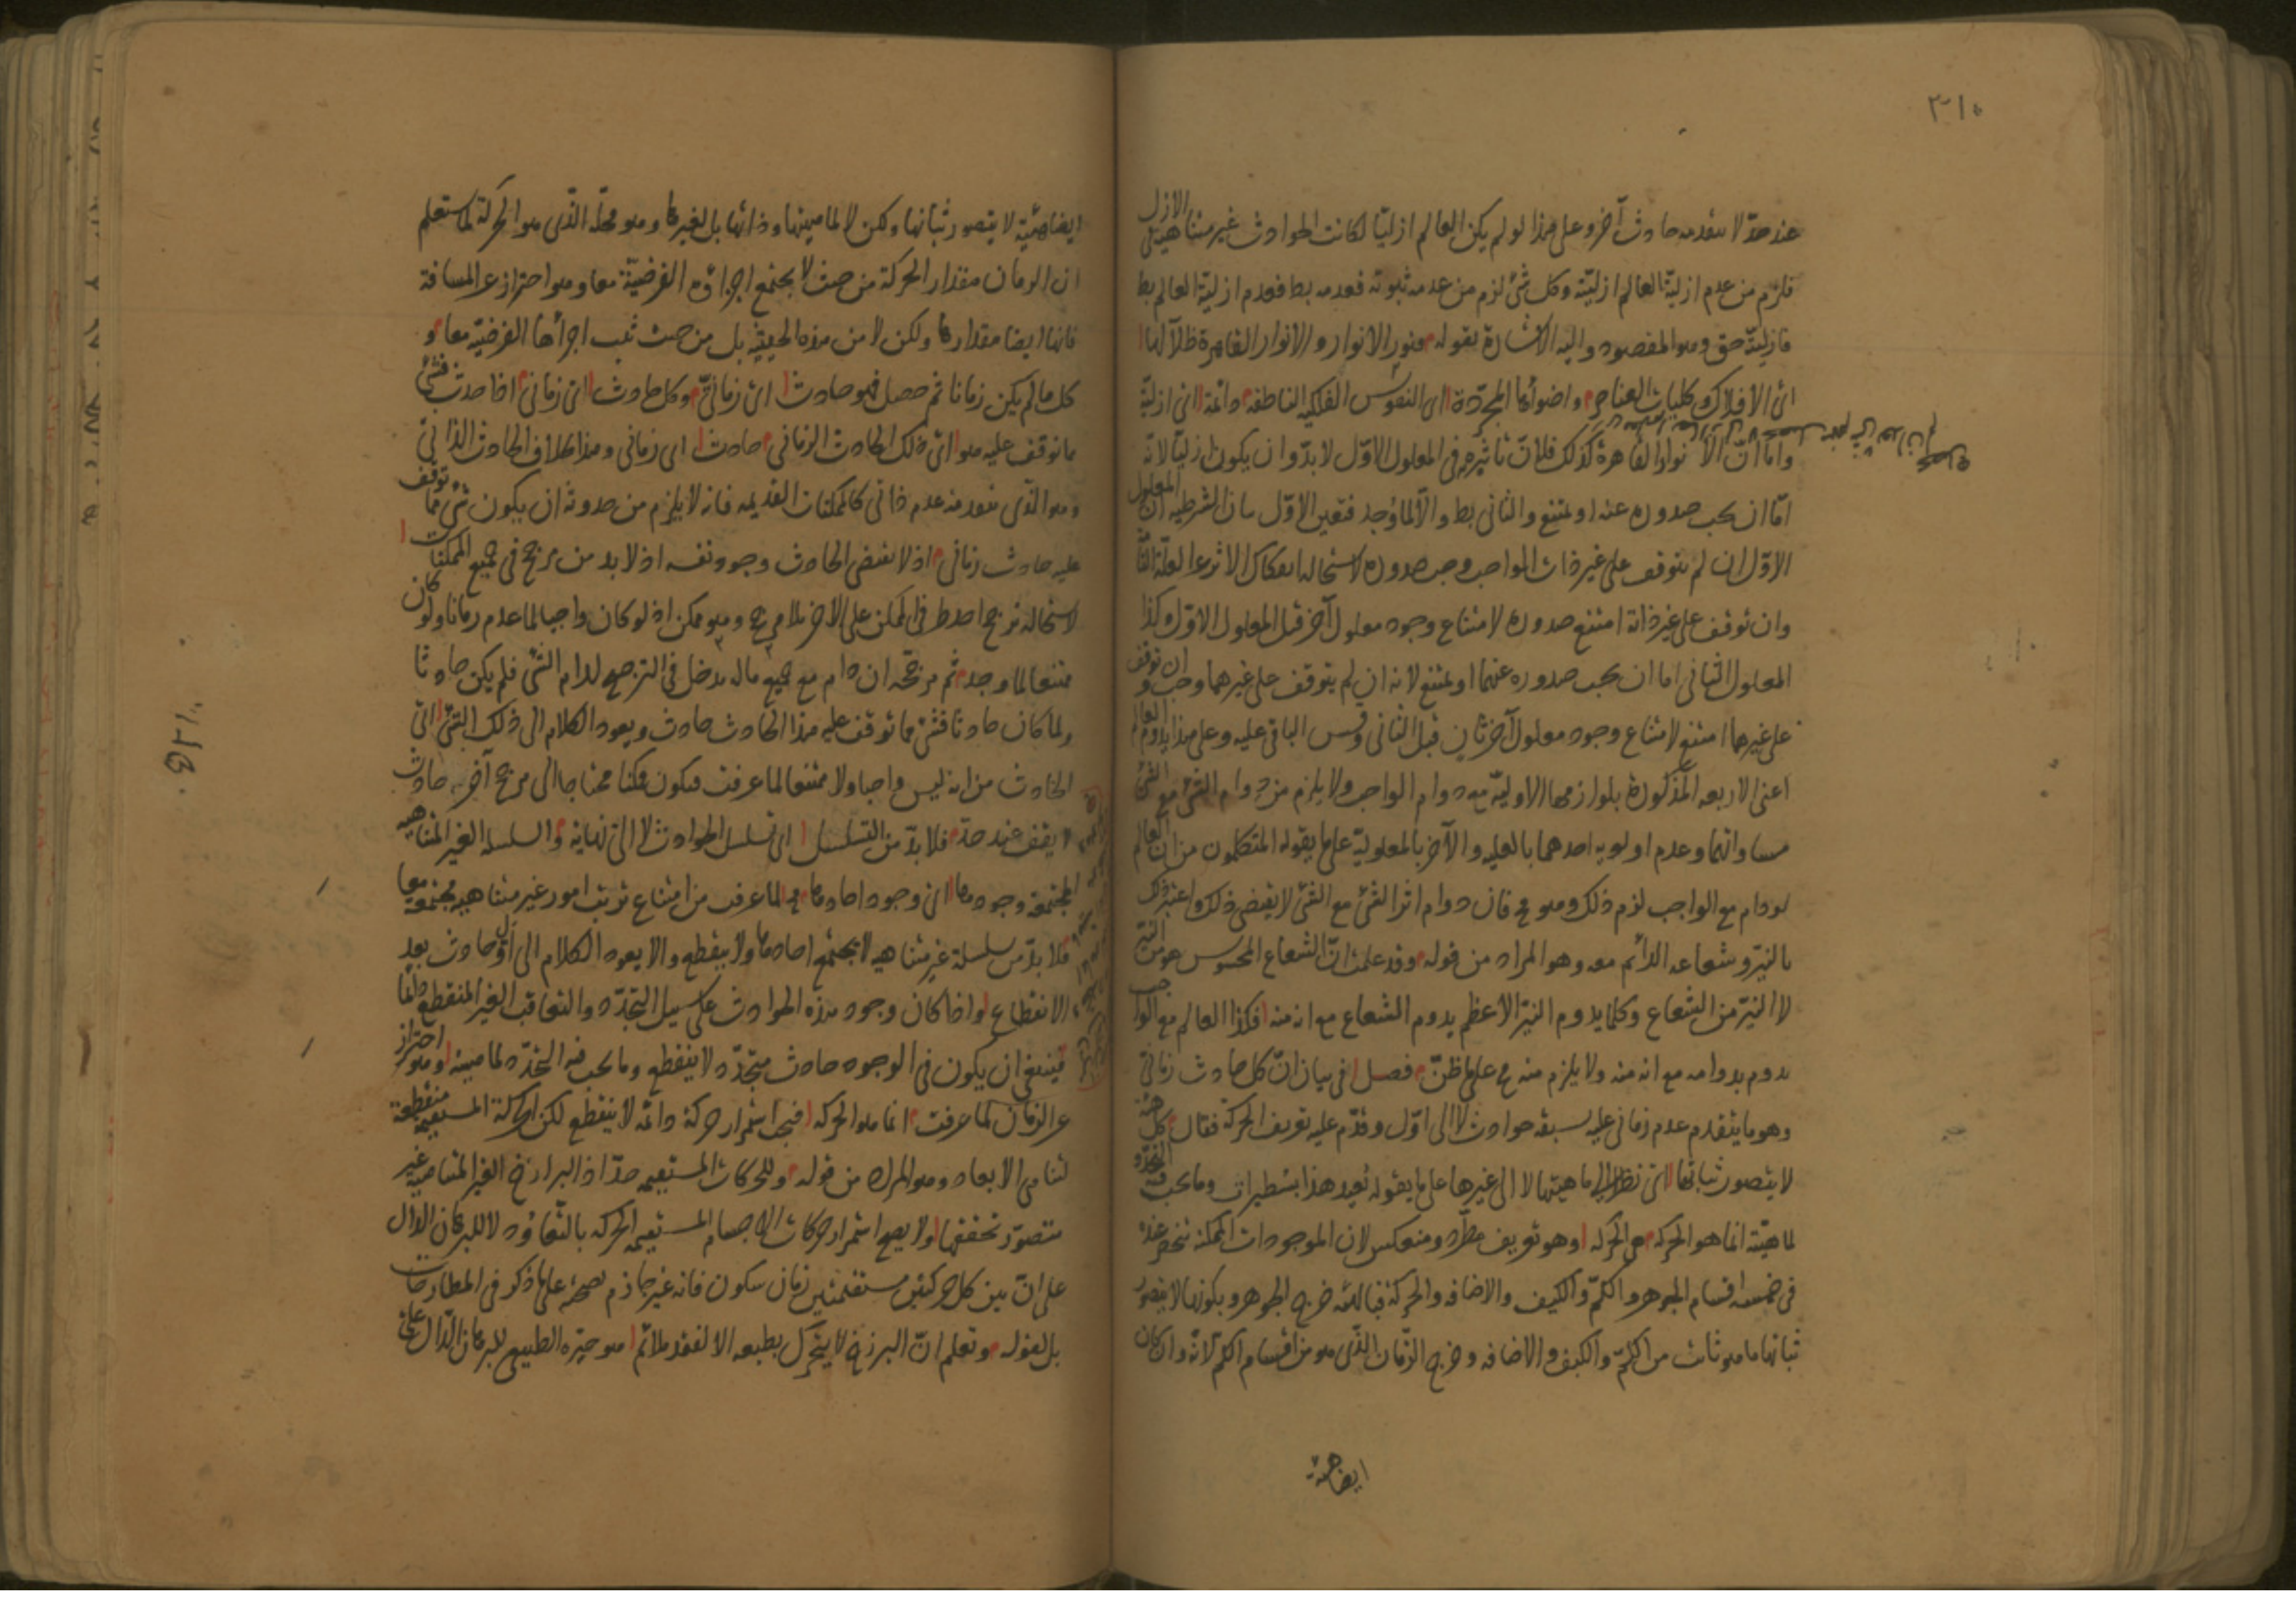 عند حدّ لا يتقدمه حادث آخر وعلى هذا لو لم يكن العالم ازليّا لكانت الحوادث غير متناهية فى الازل
فلزم من عدم ازلية العالم ازليّته وكل شئ لزم من عدمه ثبوته فعدمه بط فعدم ازلية العالم بط
فازليّته حق وهو المقصود واليه الاشارة بقوله فنور الانوار والانوار القاهرة ظلالها
اى الافلاك وكليات العناصر واضوأها المجرّدة اى النفوس الفلكيه الناطقة دائمة اى ازليّة
وامّا انّ الانوار القاهرة كذلك فلانّ تأثيره فى المعلول الاوّل لا بدّ وان يكون ازليّا لانه
امّا ان يجب صدوره عنه او يمتنع والثانى بط والّا لما وُجد فتعين الاوّل بيان الشرطيه ان المعلول
الاوّل ان لم يتوقف على غير ذات الواجب وجب صدوره لاستحالة انفكاك الاثر عن العلّة التامّة
وان توقف على غير ذاته امتنع صدوره لامتناع وجود معلول آخر قبل المعلول الاوّل وكذا
المعلول الثانى اما ان يجب صدوره عنهما او يمتنع لانه ان لم يتوقف على غيرهما وجب وان توقف
على غيرهما امتنع لامتناع وجود معلول آخر ثانٍ قبل الثانى وقس الباقى عليه وعلى هذا يدوم العالم
اعنى الاربعه المذكورة بلوازمها الاوليّة مع دوام الواجب ولا يلزم من دوام الشئ مع الشئ
مساواتهما وعدم اولوية احدهما بالعليه والآخر بالمعلوليّة على ما يقوله المتكلمون من ان العالم
لو دام مع الواجب لزم ذلك وهو مح فان دوام اثر الشئ مع الشئ لا يقتضى ذلك واعتبر ذلك
بالنيّر وشعاعه الدائم معه وهو المراد من قوله وقد علمت انّ الشعاع المحسوس هو من النيّر
لا النيّر من الشعاع وكلما يدوم النيّر الاعظم يدوم الشعاع مع انه منه فكذا العالم مع الواجب
يدوم بدوامه مع انه منه ولا يلزم منه مح على ما ظنّ فصل فى بيان انّ كل حادث زمانى
وهو ما يتقدم عدم زمانى عليه يسبقه حوادث لا الى اوّل وقدّم عليه تعريف الحركة فقال كل هيئة
لا يتصور ثباتها اى نظرا الى ماهيتها لا الى غيرها على ما يقوله بُعيد هذا بسُطيرات وما يجب فيه التجدّد
لماهيّته انما هو الحركة هى الحركة وهو تعريف مطّرد ومنعكس لان الموجودات الممكنة تنحصر عنده
فى خمسة اقسام الجوهر والكمّ والكيف والاضافه والحركة فبالهيئة خرج الجوهر وبكونها لا يتصور
ثباتها ما هو ثابت من الكمّ والكيف والاضافه وخرج الزّمان الذّى هو من اقسام الكم لانّه وان كان
ايضا هيئة
ايضا هيئة لا يتصور ثباتها ولكن لا لماهيتها وذاتها بل لغيرها وهو محلّه الذّى هو الحركة لما ستعلم
ان الزمان مقدار الحركة من حيث لا يجتمع اجزاؤه الفرضيّة معا وهو احتراز عن المسافة
فانها ايضا مقدارها ولكن لا من هذه الحيثية بل من حيث تثبت اجزاؤها الفرضيّة معا و
كل ما لم يكن زمانا ثم حصل فهو حادث اى زمانىّ وكل حادث اى زمانى اذا حدث فشئ
ما توقف عليه هو اى ذلك الحادث الزمانى حادث اى زمانى وهذا بخلاف الحادث الذاتى
وهو الذّى يتقدمه عدم ذاتى كالممكنات القديمه فانه لا يلزم من حدوثه ان يكون شئ مما توقف
عليه حادث زمانى اذ لا يقتضى الحادث وجود نفسه اذ لا بد من مرجح فى جميع الممكنات
لاستحالة ترجح احد طرفى الممكن على الآخر بلا مرجح وهو ممكن اذ لو كان واجبا لما عدم زمانا ولو كان
ممتنعا لما وجد ثم مرجّحه ان دام مع جميع ما له مدخل فى الترجيح لدام الشئ فلم يكن حادثا
ولما كان حادثا فشئ مما توقف عليه هذا الحادث حادث ويعود الكلام الى ذلك الشئ اى
الحادث من انه ليس واجبا ولا ممتنعا لما عرفت فيكون ممكنا محتاجا الى مرجح آخر حادث
لا يقف عند حدّ فلا بدّ من التسلسل اى تسلسل الحوادث لا الى نهاية والسلسلة الغير المتناهيه
المجتمعة وجودها اى وجود احادها مح لما عرفت من امتناع ترتب امور غير متناهية مجتمعة معا
فلا بدّ من سلسلة غير متناهية لا يجتمع احادها ولا ينقطع والا يعود الكلام الى اوّل حادث بعد
الانقطاع واذا كان وجود هذه الحوادث على سبيل التجدّد والتعاقب الغير المنقطع دائما
فينبغى ان يكون فى الوجود حادث متجدّد لا ينقطع وما يجب فيه التجدّد لماهيته وهو احتراز
عن الزمان كما عرفت انما هو الحركه فيجب استمرار حركة دائمه لا ينقطع لكن الحركة المستقيمه منقطعة
لتناهى الابعاد وهو المراد من قوله وللحركات المستقيمه حدّ اذ البرازخ الغير المتناهية غير
متصوّر تحققها ولا يصح استمرار حركات الاجسام المستقيمة الحركه بالتعاود لا للبرهان الدال
على انّ بين كل حركتين مستقيمتين زمان سكون فانه غير جازم بصحته على ما ذكر فى المطارحات
بل لقوله وتعلم انّ البرزخ لا يتحرك بطبعه الا لفقد ملائم هو حيّزه الطبيعى للبرهان الدّال على